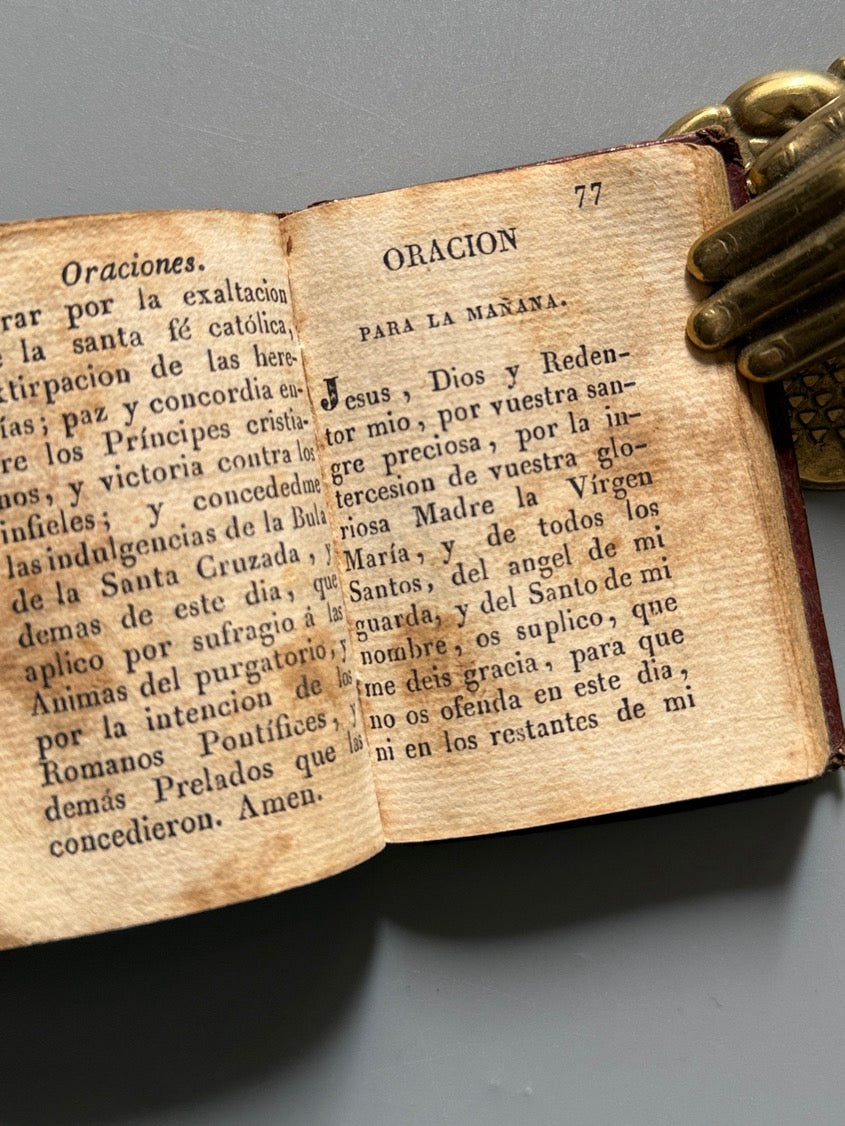 Oraciones.
rar por la exaltacion
la santa fé católica,
tirpacion de las here-
ías; paz y concordia en-
re los Príncipes cristia-
nos, y victoria contra los
infieles; y concededme
las indulgencias de la Bula
de la Santa Cruzada, y
demas de este dia, que
aplico por sufragio á las
Animas del purgatorio, y
por la intencion de los
Romanos Pontífices, y
demás Prelados que las
concedieron. Amen.
77
ORACION
PARA LA MAÑANA.
Jesus, Dios y Reden-
tor mio, por vuestra san-
gre preciosa, por la in-
tercesion de vuestra glo-
riosa Madre la Vírgen
María, y de todos los
Santos, del angel de mi
guarda, y del Santo de mi
nombre, os suplico, que
me deis gracia, para que
no os ofenda en este dia,
ni en los restantes de mi